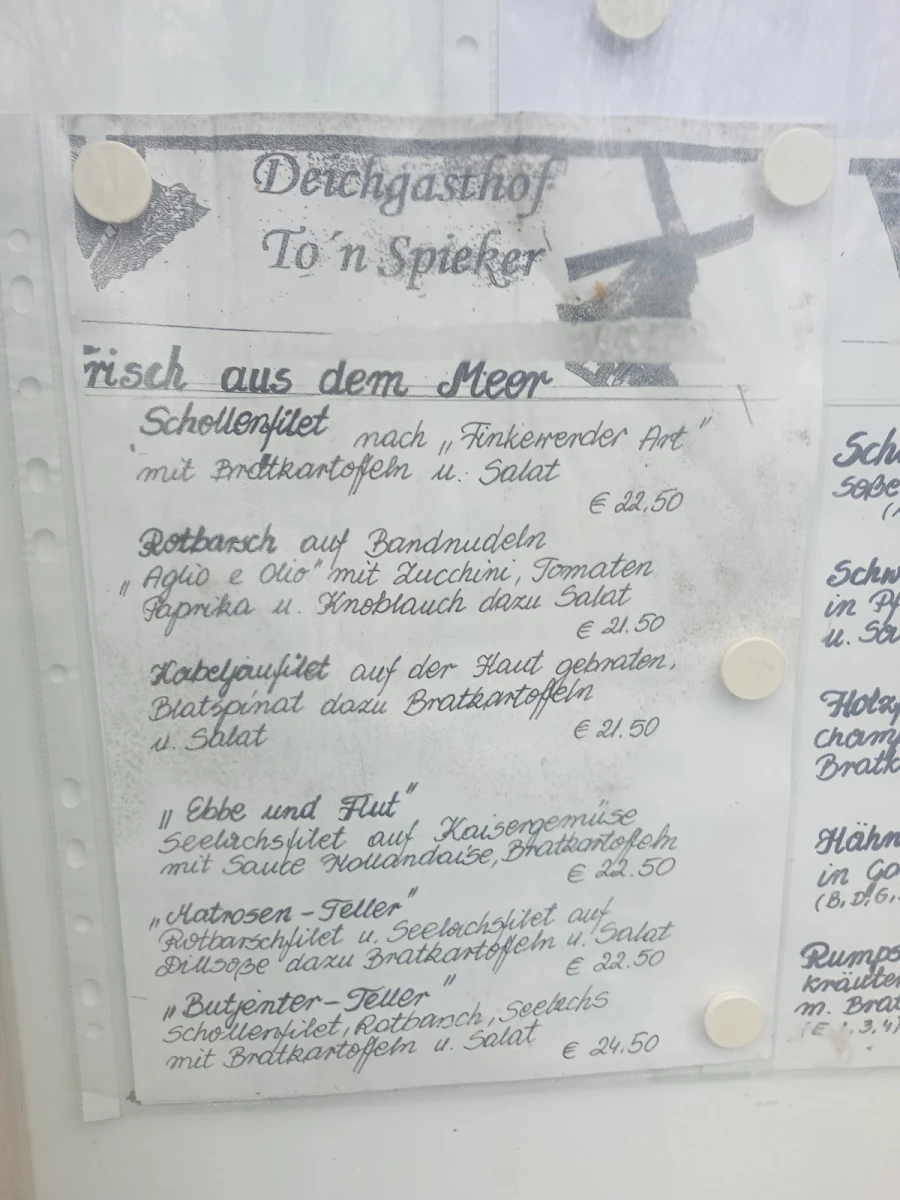 Deichgasthof
To´n Spieker
Frisch aus dem Meer
Schollenfilet nach „Finkewerder Art"
mit Bratkartoffeln u. Salat
€ 22.50
Rotbarsch auf Bandnudeln
„Aglio e Olio" mit Zucchini, Tomaten
Paprika u. Knoblauch dazu Salat
€ 21.50
Kabeljaufilet auf der Haut gebraten,
Blatspinat dazu Bratkartoffeln
u. Salat
€ 21.50
„Ebbe und Flut"
Seelachsfilet auf Kaisergemüse
mit Sauce Hollandaise, Bratkartoffeln
€ 22.50
„Matrosen-Teller"
Rotbarschfilet u. Seelachsfilet auf
Dillsoße dazu Bratkartoffeln u. Salat
€ 22.50
„Butjenter-Teller"
Schollenfilet, Rotbarsch, Seelachs
mit Bratkartoffeln u. Salat
€ 24.50
soße
in
u.
Bratk
in
(B, D, G,
m. Brat